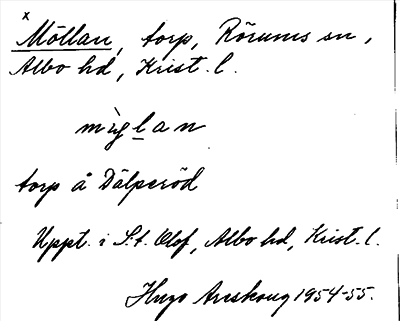 x
Möllan, torp, Rörums sn,
Albo hd, Krist. l.
torp å Dälperöd
Uppt. i S:t. Olof, Albo hd, Krist. l.
Hugo Areskoug 1954-55.